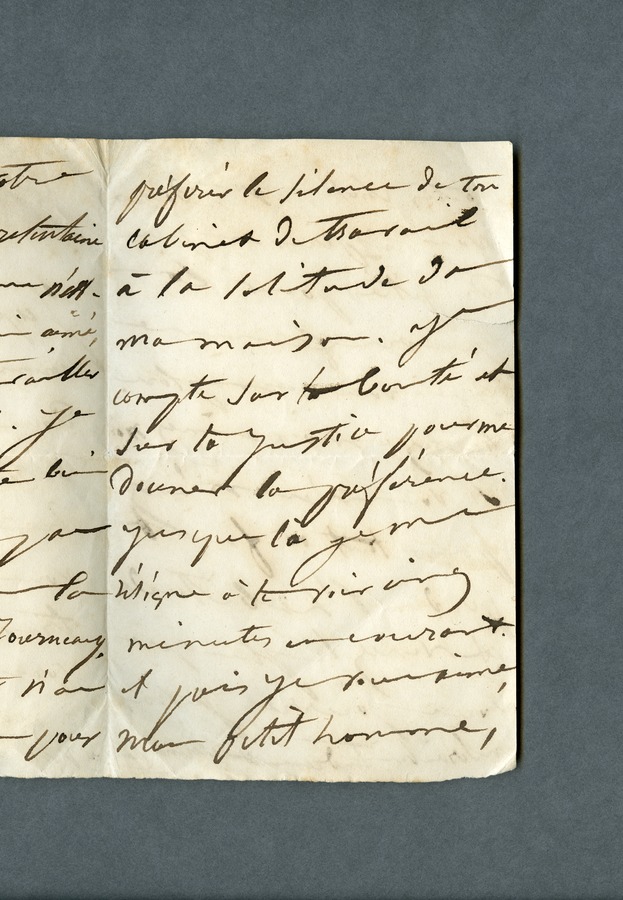 otre
n'est-
aimé,
travailler
. je
te bien
pas
la
Tourneay
n'a
pour
préférer le silence de ton
cabinet de travail
à la solitude de
ma maison. Je
compte sur ta bonté et
sur ta justice pour me
donner la préférence.
jusque là je me
résigne à te voir cinq
minutes en courant.
et puis je vous aime,
mon petit homme,